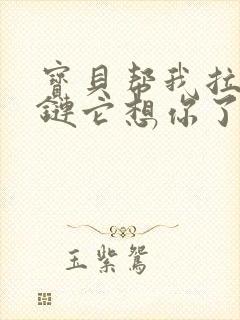 寶貝帮我拉
鏈它想你了
玉紫鴛